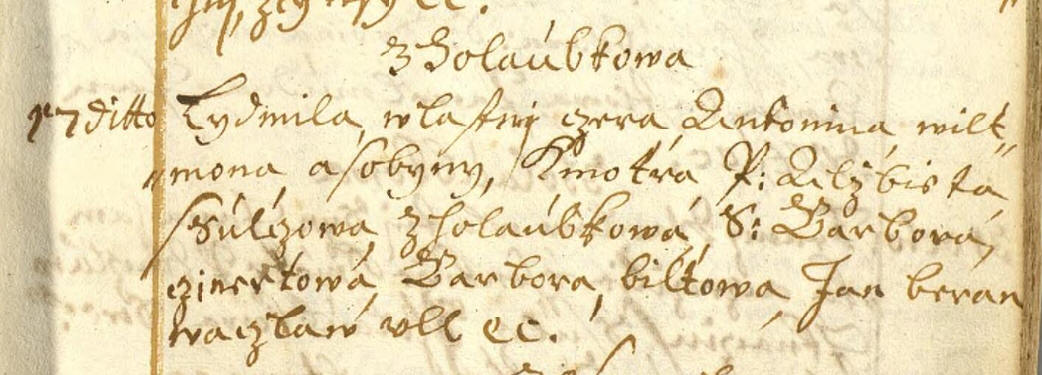 z Holaubkowa
17 ditto Lydmila, wlastny czera Antonina wilt„
„mona a sobyny, Kmotra P: Alzbieta
ssulczowa z holaubkowa, S: Barbora,
czinertowa, Barbora, biltowa Jan beran
waczlaw ull etc.